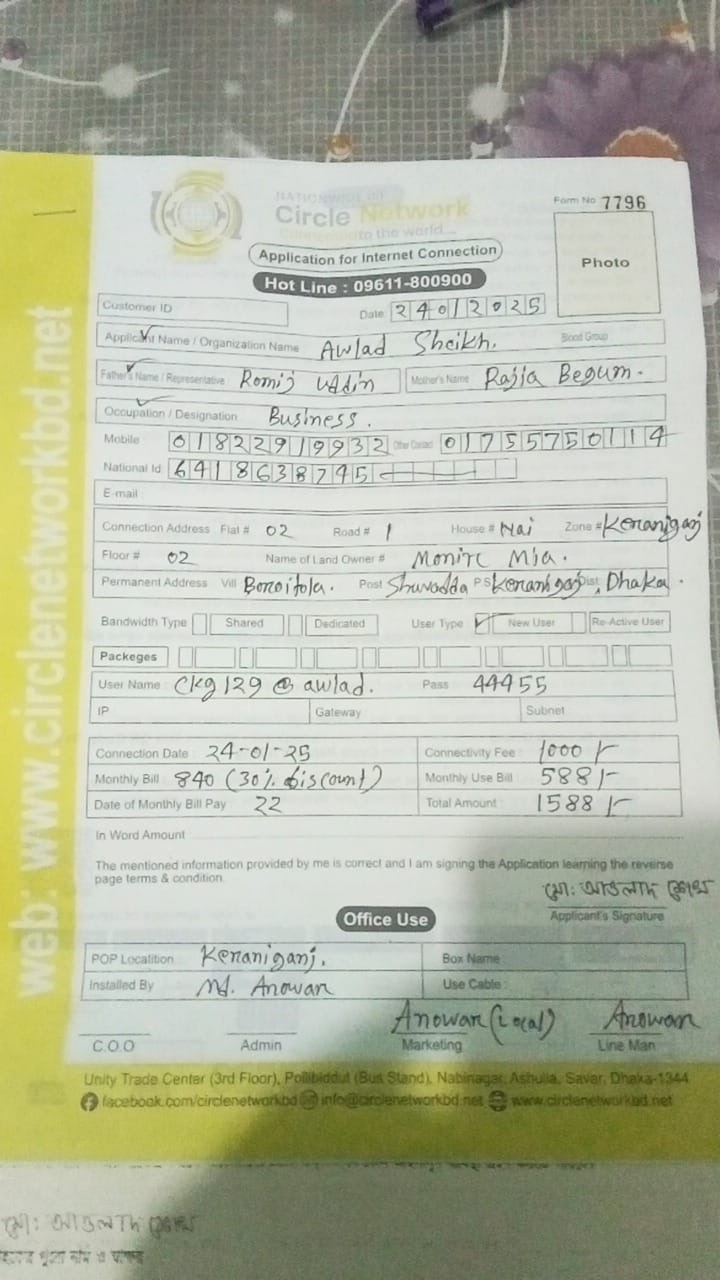 NATIONWIDE ISP
Circle Network
Connecting to the world...
Form No 7796
Application for Internet Connection
Photo
Hot Line : 09611-800900
Customer ID
Date 24012025
Applicant Name / Organization Name Awlad Sheikh. Blood Group
Father's Name / Representative Romij Uddin Mother's Name Rajia Begum.
Occupation / Designation Business.
Mobile 01822919932 Other Contact 01755750114
National Id 6418638745
E-mail
Connection Address Flat # 02 Road # 1 House # Nai Zone # Keraniganj
Floor # 02 Name of Land Owner # Monir Mia.
Permanent Address Vill Boroitola. Post Shuvadda P S Keraniganj Dist, Dhaka.
Bandwidth Type Shared Dedicated User Type New User Re-Active User
Packeges
User Name : Ckg129@awlad. Pass 44455
IP Gateway Subnet
Connection Date : 24-01-25 Connectivity Fee : 1000/-
Monthly Bill : 840 (30% discount) Monthly Use Bill 588/-
Date of Monthly Bill Pay 22 Total Amount : 1588/-
In Word Amount
The mentioned information provided by me is correct and I am signing the Application learning the reverse
page terms & condition.
মো: আওলাদ শেখ
Applicant's Signature
Office Use
POP Locatition Keraniganj. Box Name
Installed By Md. Anowar Use Cable :
Anowar (Local) Anowar
C.O.O Admin Marketing Line Man
Unity Trade Center (3rd Floor), Pollibiddut (Bus Stand), Nabinagar, Ashulia, Savar, Dhaka-1344
facebook.com/circlenetworkbd info@circlenetworkbd.net www.circlenetworkbd.net
web: www.circlenetworkbd.net
মো: আওলাদ শেখ